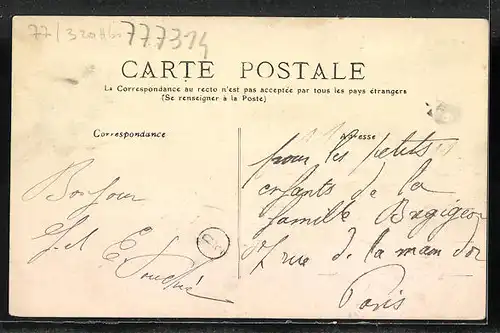 77/320
777314
CARTE POSTALE
La Correspondance au recto n'est pas acceptée par tous les pays étrangers
(Se renseigner à la Poste)
Correspondance
Adresse
Bonjour
E. Touché
pour les petits
enfants de la
famille
rue de la main d'or
Paris